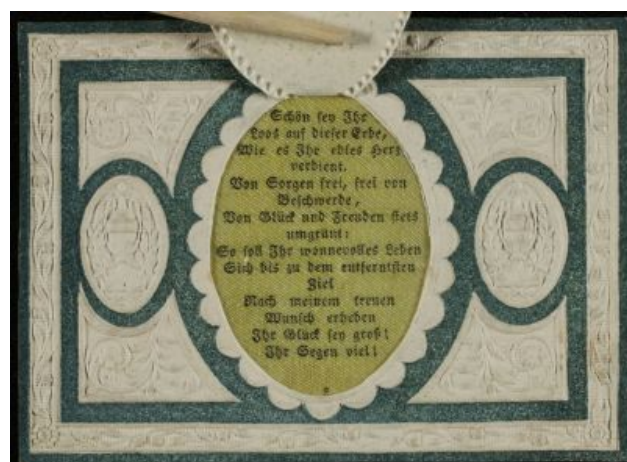 Schön sey Ihr
Loos auf dieser Erde,
Wie es Ihr edles Herz
verdient.
Von Sorgen frei, frei von
Beschwerde,
Von Glück und Freuden stets
umgrünt:
So soll Ihr wonnevolles Leben
Sich bis zu dem entferntsten
Ziel
Nach meinem treuen
Wunsch erheben
Ihr Glück sey groß!
Ihr Segen viel!